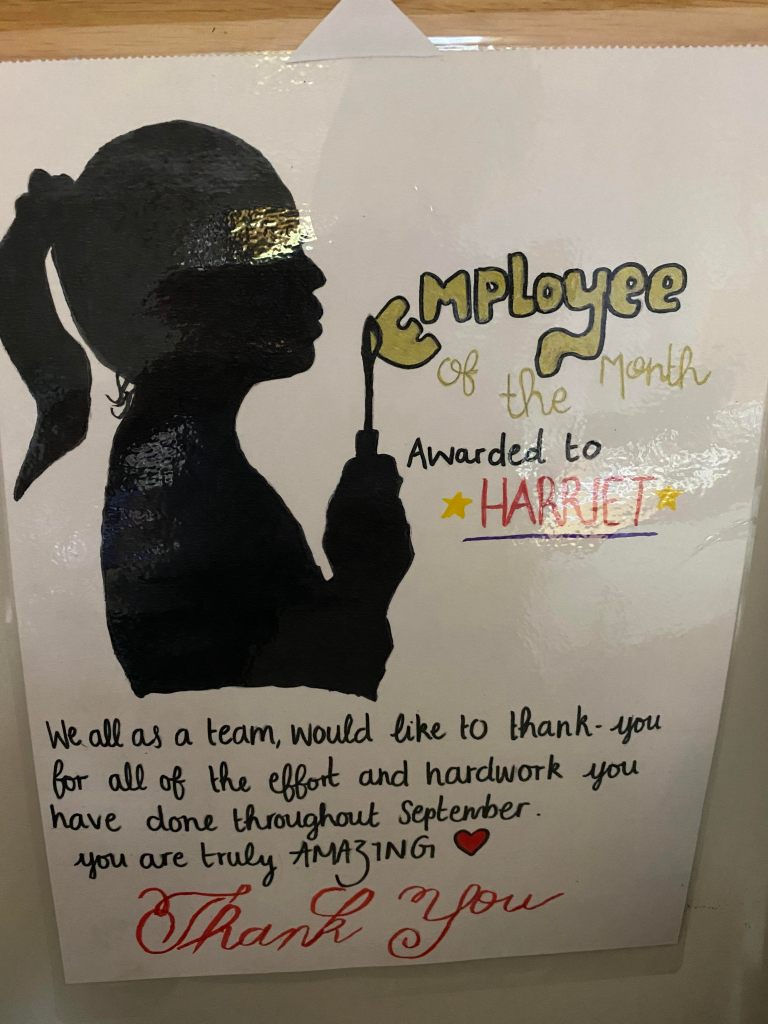 EMPLoyee
of the Month
Awarded to
HARRIET
We all as a team, would like to thank-you
for all of the effort and hardwork you
have done throughout September.
you are truly AMAZING
Thank You